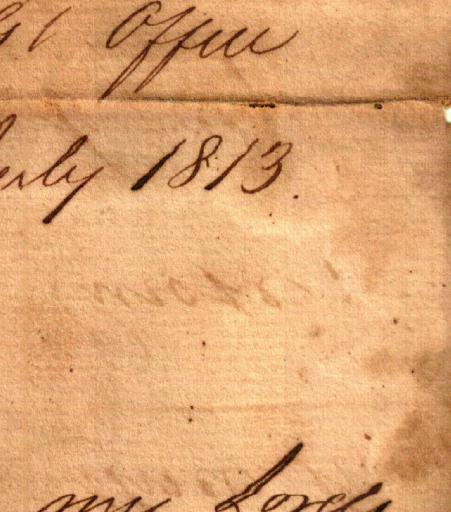 Office
July 1813.
my Lords